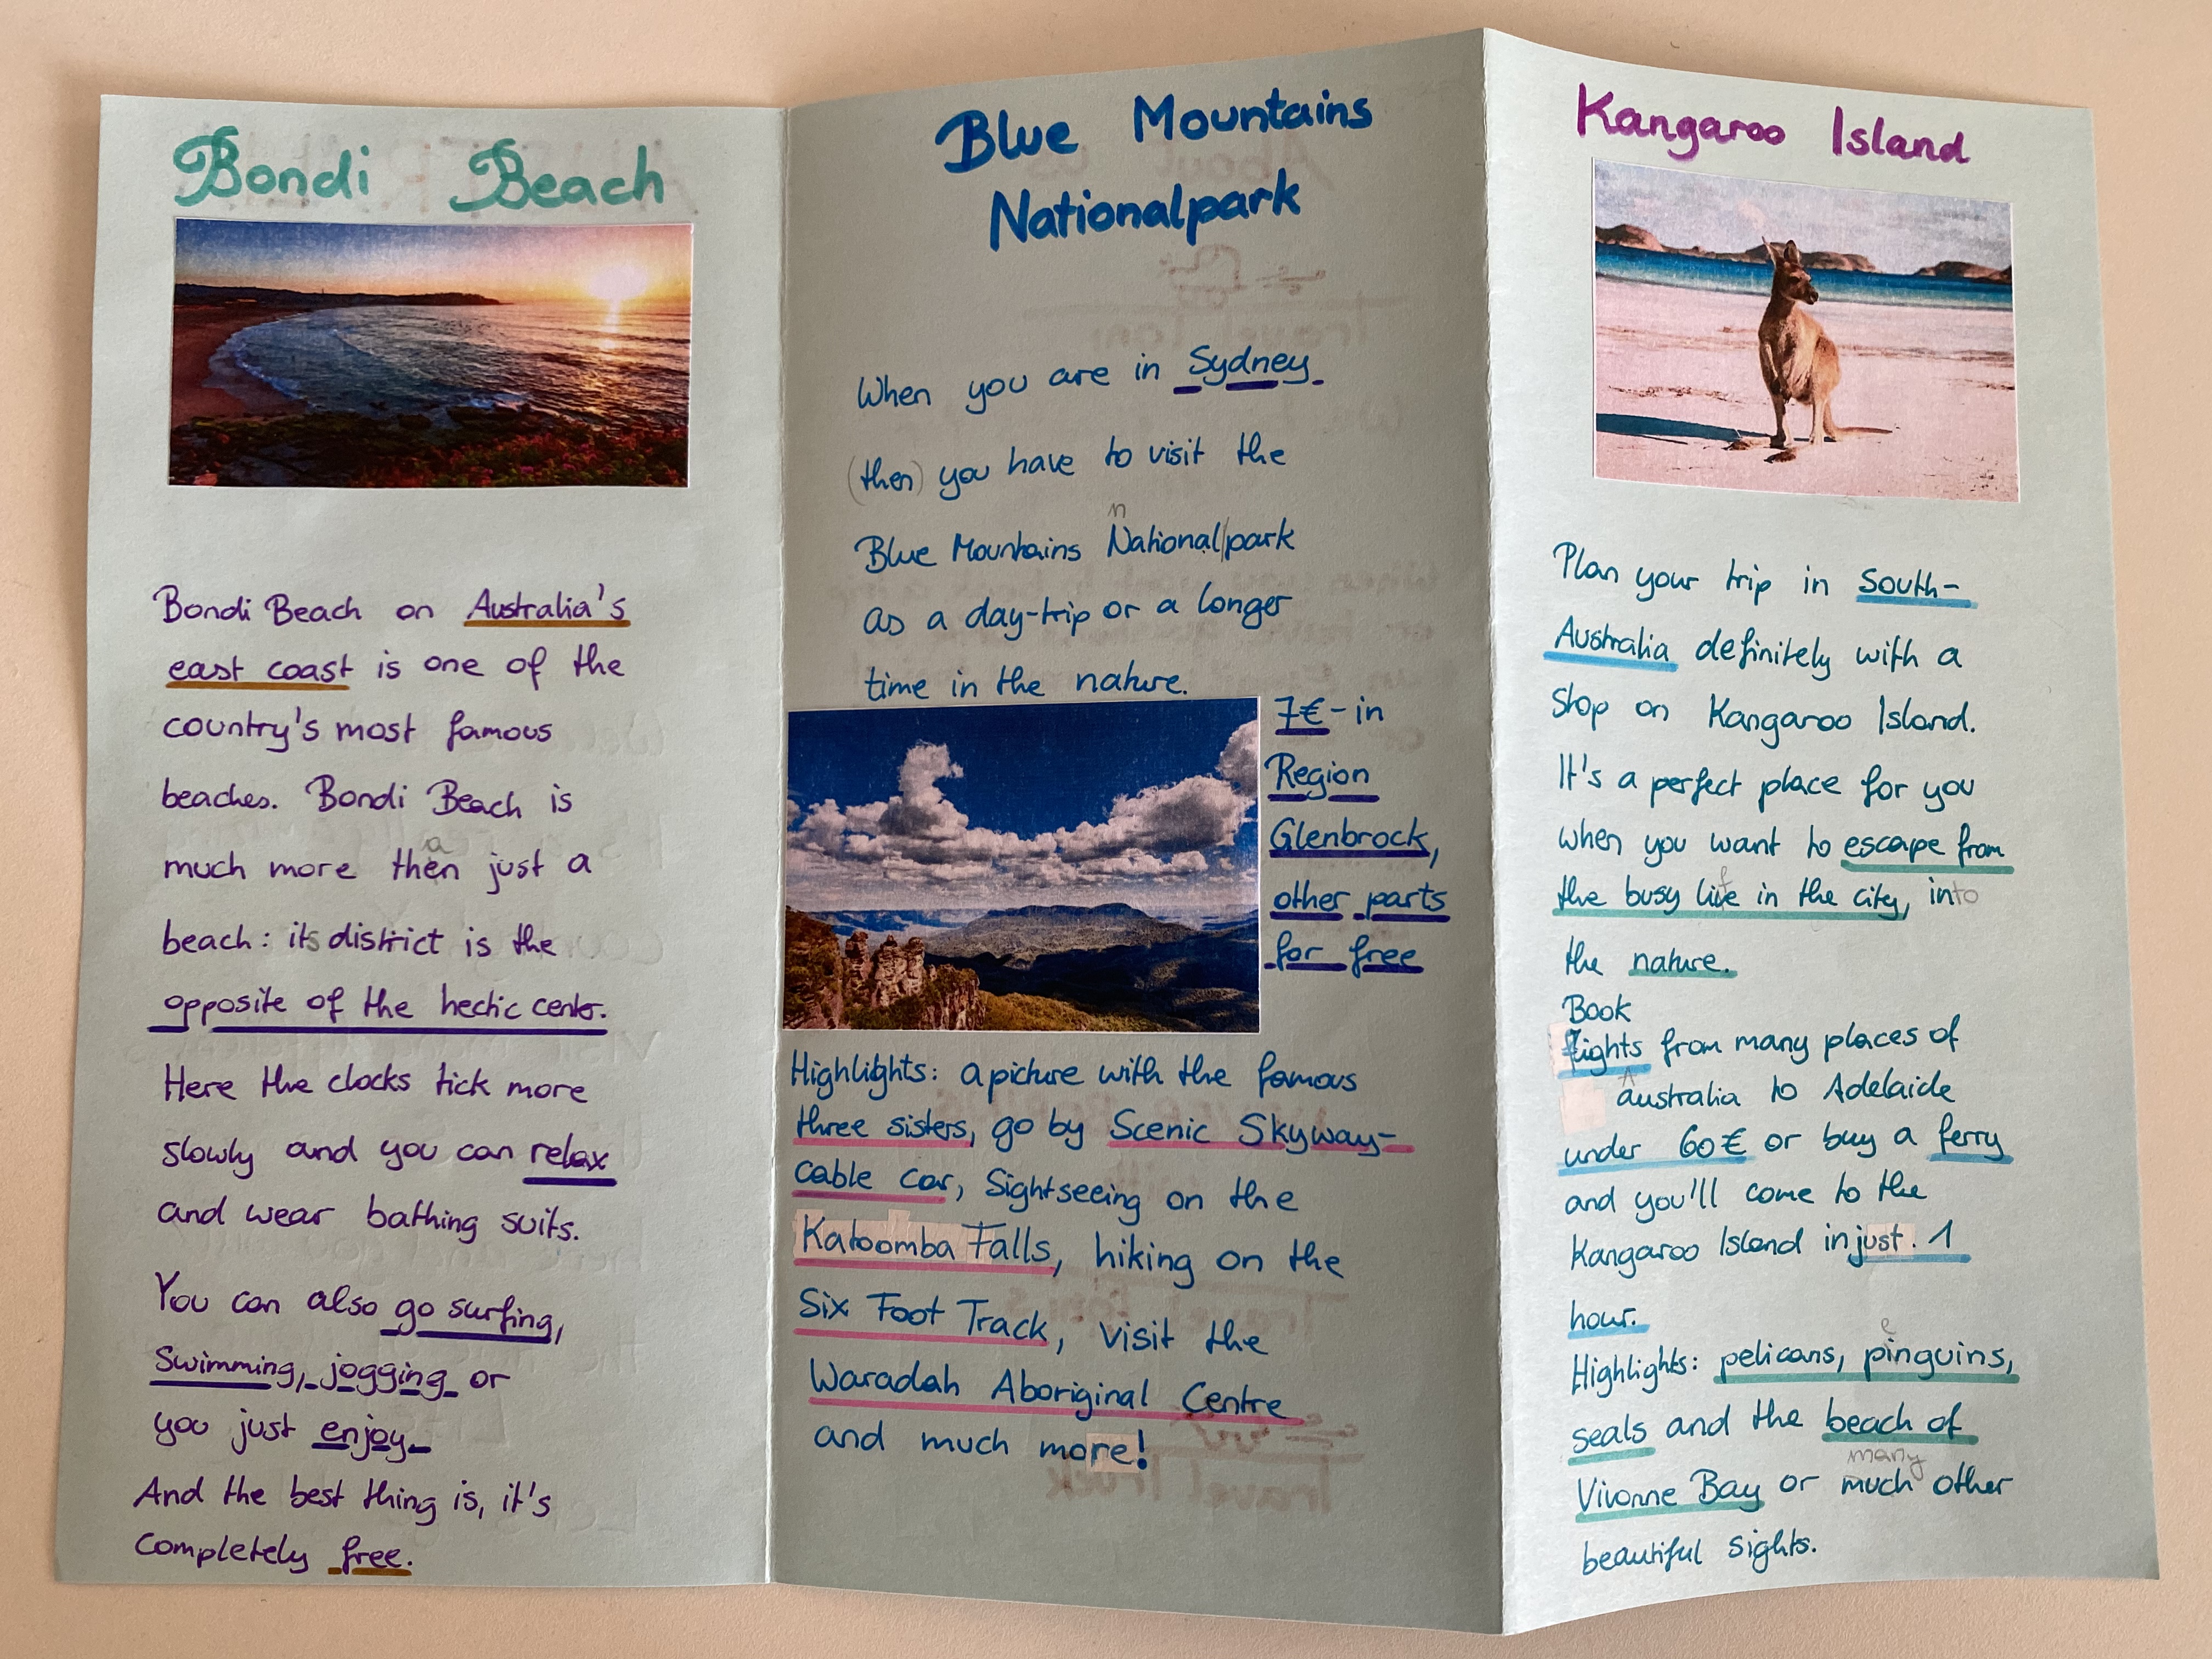 Bondi Beach
Bondi Beach on Australia's
east coast is one of the
country's most famous
beaches. Bondi Beach is
a
much more then just a
beach: its district is the
opposite of the hectic center.
Here the clocks tick more
slowly and you can relax
and wear bathing suits.
You can also go surfing,
swimming, jogging or
you just enjoy.
And the best thing is, it's
completely free.
Blue Mountains
Nationalpark
When you are in Sydney
(then) you have to visit the
n
Blue Mountains National|park
as a day-trip or a longer
time in the nature.
7€ - in
Region
Glenbrock,
other parts
for free
Highlights: a picture with the famous
three sisters, go by Scenic Skyway-
cable car, Sightseeing on the
Katoomba Falls, hiking on the
Six Foot Track, visit the
Waradah Aboriginal Centre
and much more!
Kangaroo Island
Plan your trip in South-
Australia definitely with a
stop on Kangaroo Island.
It's a perfect place for you
when you want to escape from
f
the busy live in the city, into
the nature.
Book
flights from many places of
A
australia to Adelaide
under 60€ or buy a ferry
and you'll come to the
Kangaroo Island in just. 1
hour.
e
Highlights: pelicans, pinguins,
seals and the beach of
many
Vivonne Bay or much other
beautiful sights.